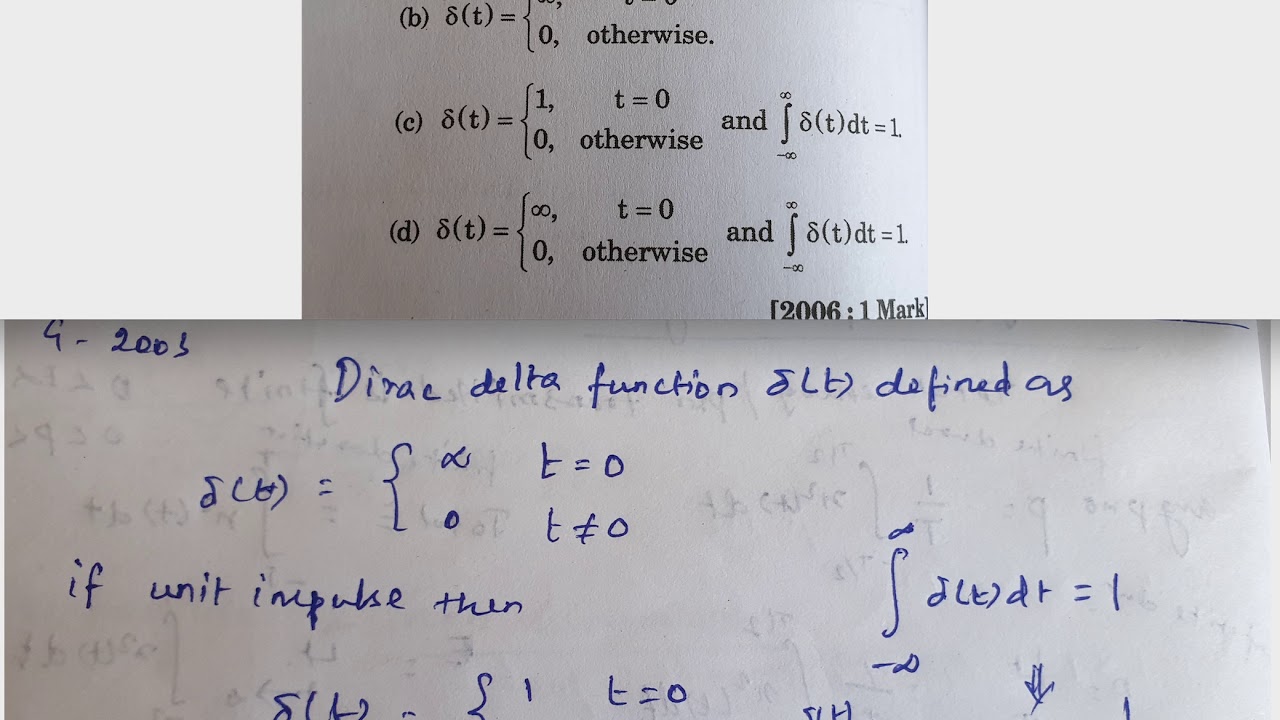 (b) δ(t) = { 0, otherwise.
(c) δ(t) = { 1, t = 0
0, otherwise and ∫_{-∞}^{∞} δ(t)dt = 1.
(d) δ(t) = { ∞, t = 0
0, otherwise and ∫_{-∞}^{∞} δ(t)dt = 1.
[2006 : 1 Mark]
G - 2003
Dirac delta function δ(t) defined as
δ(t) = { ∞ t = 0
0 t ≠ 0
if unit impulse then ∫_{-∞}^{∞} δ(t)dt = 1
δ(t) = { 1 t = 0